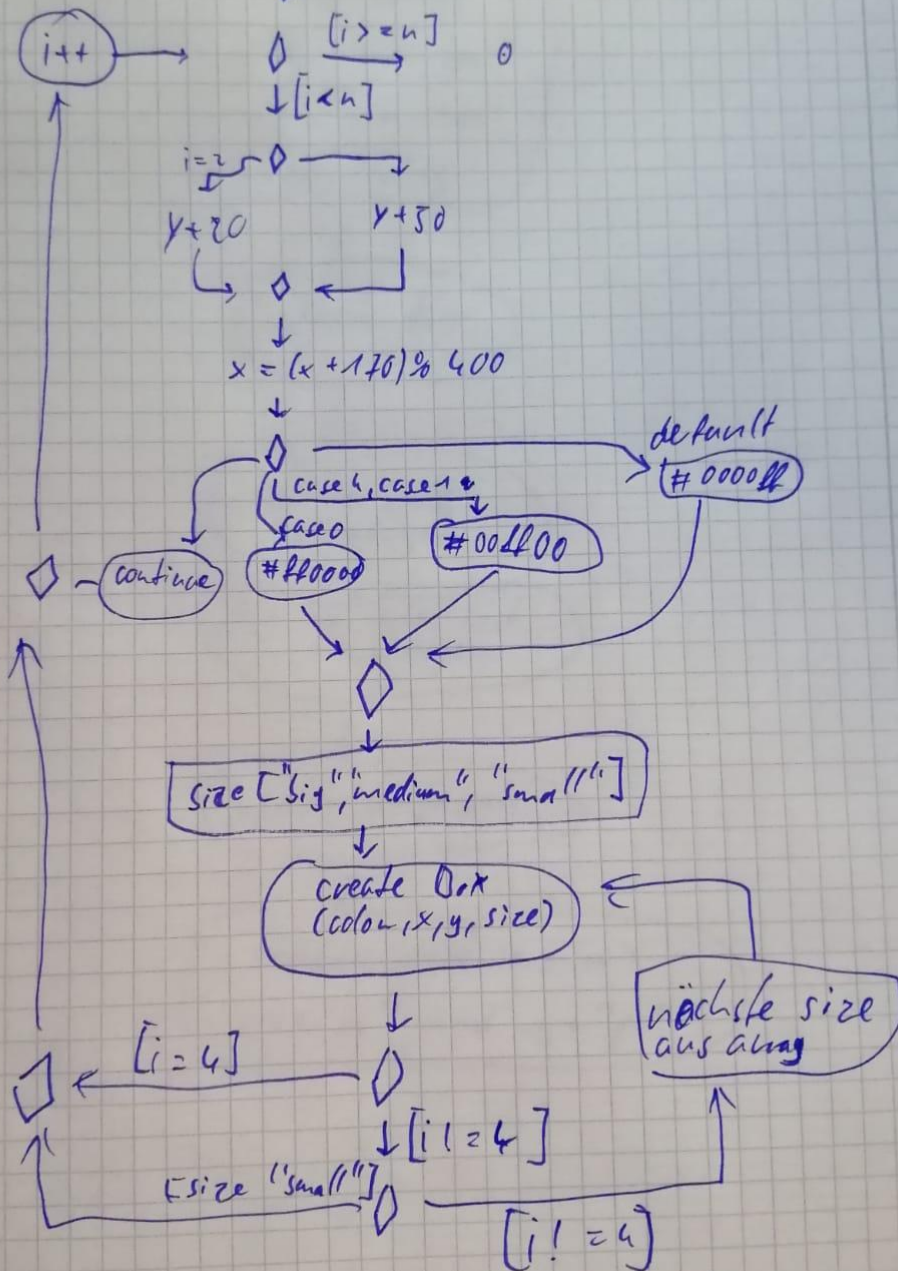 i++
[i>=n]
[i<n]
i=2
y+20
y+50
x = (x+170)% 400
default
#0000ff
case 4, case 1
case 0
continue
#ff0000
#00ff00
size ["big", "medium", "small"]
create
(colour, x, y, size)
nächste size
aus array
[i=4]
[i!=4]
[size "small"]
[i!=4]